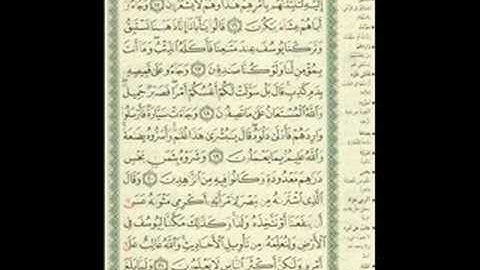 إِلَيْهِ لَتُنَبِّئَنَّهُم بِأَمْرِهِمْ هَٰذَا وَهُمْ لَا يَشْعُرُونَ ١٥ وَجَآءُوٓ
أَبَاهُمْ عِشَآءً يَبْكُونَ ١٦ قَالُوا۟ يَٰٓأَبَانَآ إِنَّا ذَهَبْنَا نَسْتَبِقُ
وَتَرَكْنَا يُوسُفَ عِندَ مَتَٰعِنَا فَأَكَلَهُ ٱلذِّئْبُ وَمَآ أَنتَ
بِمُؤْمِنٍ لَّنَا وَلَوْ كُنَّا صَٰدِقِينَ ١٧ وَجَآءُو عَلَىٰ قَمِيصِهِۦ
بِدَمٍ كَذِبٍ قَالَ بَلْ سَوَّلَتْ لَكُمْ أَنفُسُكُمْ أَمْرًا فَصَبْرٌ جَمِيلٌ
وَٱللَّهُ ٱلْمُسْتَعَانُ عَلَىٰ مَا تَصِفُونَ ١٨ وَجَآءَتْ سَيَّارَةٌ فَأَرْسَلُوا۟
وَارِدَهُمْ فَأَدْلَىٰ دَلْوَهُۥ قَالَ يَٰبُشْرَىٰ هَٰذَا غُلَٰمٌ وَأَسَرُّوهُ بِضَٰعَةً
وَٱللَّهُ عَلِيمٌۢ بِمَا يَعْمَلُونَ ١٩ وَشَرَوْهُ بِثَمَنٍۭ بَخْسٍ
دَرَٰهِمَ مَعْدُودَةٍ وَكَانُوا۟ فِيهِ مِنَ ٱلزَّٰهِدِينَ ٢٠ وَقَالَ
ٱلَّذِى ٱشْتَرَىٰهُ مِن مِّصْرَ لِٱمْرَأَتِهِۦٓ أَكْرِمِى مَثْوَىٰهُ عَسَىٰٓ
أَن يَنفَعَنَآ أَوْ نَتَّخِذَهُۥ وَلَدًا وَكَذَٰلِكَ مَكَّنَّا لِيُوسُفَ فِى
ٱلْأَرْضِ وَلِنُعَلِّمَهُۥ مِن تَأْوِيلِ ٱلْأَحَادِيثِ وَٱللَّهُ غَالِبٌ عَلَىٰٓ
أَمْرِهِۦ وَلَٰكِنَّ أَكْثَرَ ٱلنَّاسِ لَا يَعْلَمُونَ ٢١